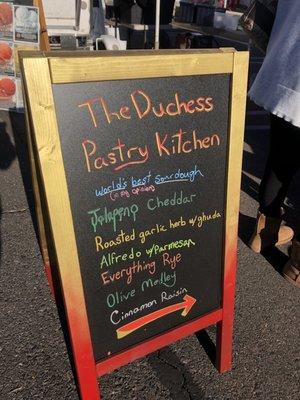 The Duchess
Pastry Kitchen
world's best sourdough
(in my opinion)
Jalapeno Cheddar
Roasted garlic herb w/ghuda
Alfredo w/Parmesan
Everything Rye
Olive Medley
Cinnamon Raisin